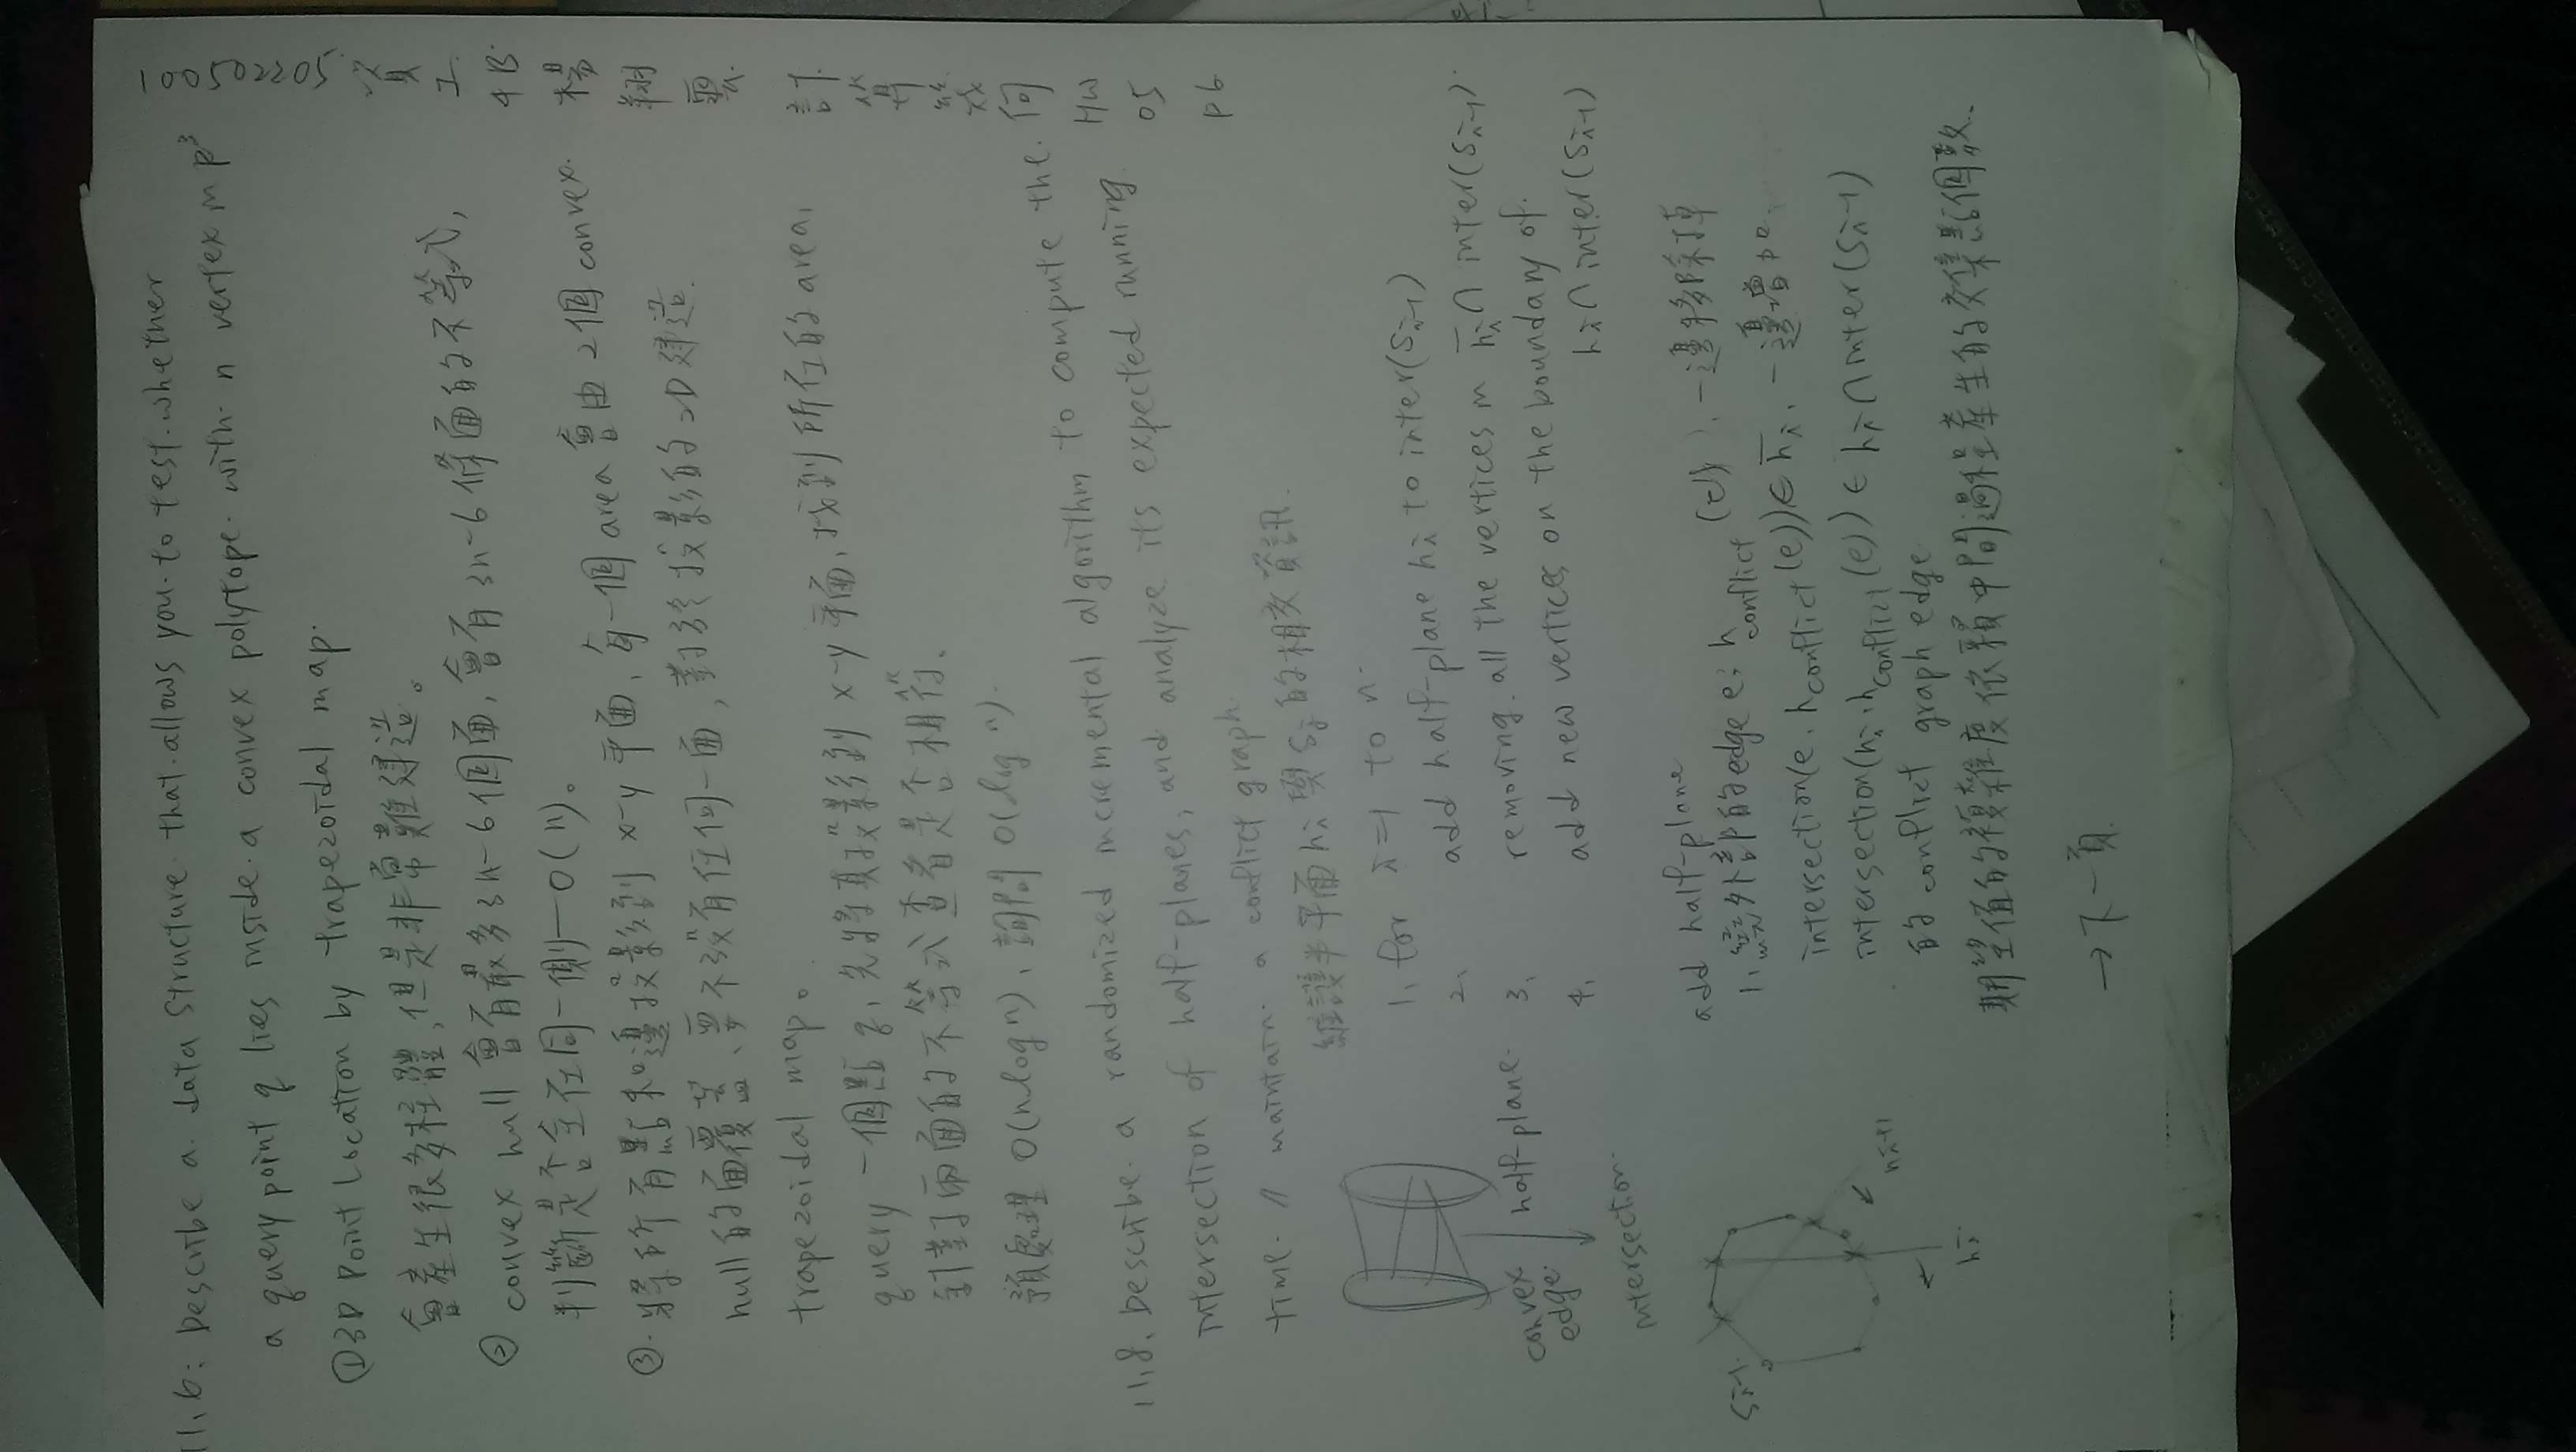 100502205 資工4B 楊翔雲 計算幾何 HW 05 P6
11.6: Describe a data structure that allows you to test whether
a query point q lies inside a convex polytope with n vertex in R³
① 3D Point Location by trapezoidal map.
會產生很多柱體,但是非常難建造。
② convex hull 會有最多 3n-6 個面,會有 3n-6 條面的不等式,
判斷是否全在同一側 — O(n)。
③. 將所有點和邊投影到 x-y 平面、每一個 area 會由 2 個 convex
hull 的面覆蓋、要不沒有任何一面,對於投影的 2D 建造
trapezoidal map。
query 一個點 q,先將其投影到 x-y 平面,找到所在的 area,
針對兩面的不等式查看是否相符.
預處理 O(nlog n)、詢問 O(log n).
11.8. Describe a randomized incremental algorithm to compute the
intersection of half-planes, and analyze its expected running
time. // maintain a conflict graph
維護半平面 hi 與 Sj 的相交資訊.
convex edge.
half-plane.
intersection.
1. for i=1 to n.
2. add half-plane hi to inter(Si-1)
3. removing all the vertices in h̅i ∩ inter(Si-1).
4. add new vertices on the boundary of
hi ∩ inter(Si-1)
Si-1.
hi
hi+1
add half-plane
1. 繞外部的 edge e; h conflict (e), 一邊移除掉
intersection(e, hconflict(e)) ∈ h̅i, 一邊增加
intersection(hi, hconflict(e)) ∈ hi ∩ inter(Si-1)
的 conflict graph edge
期望值的複雜度依賴中間過程產生的交集點個數.
→ 下一頁